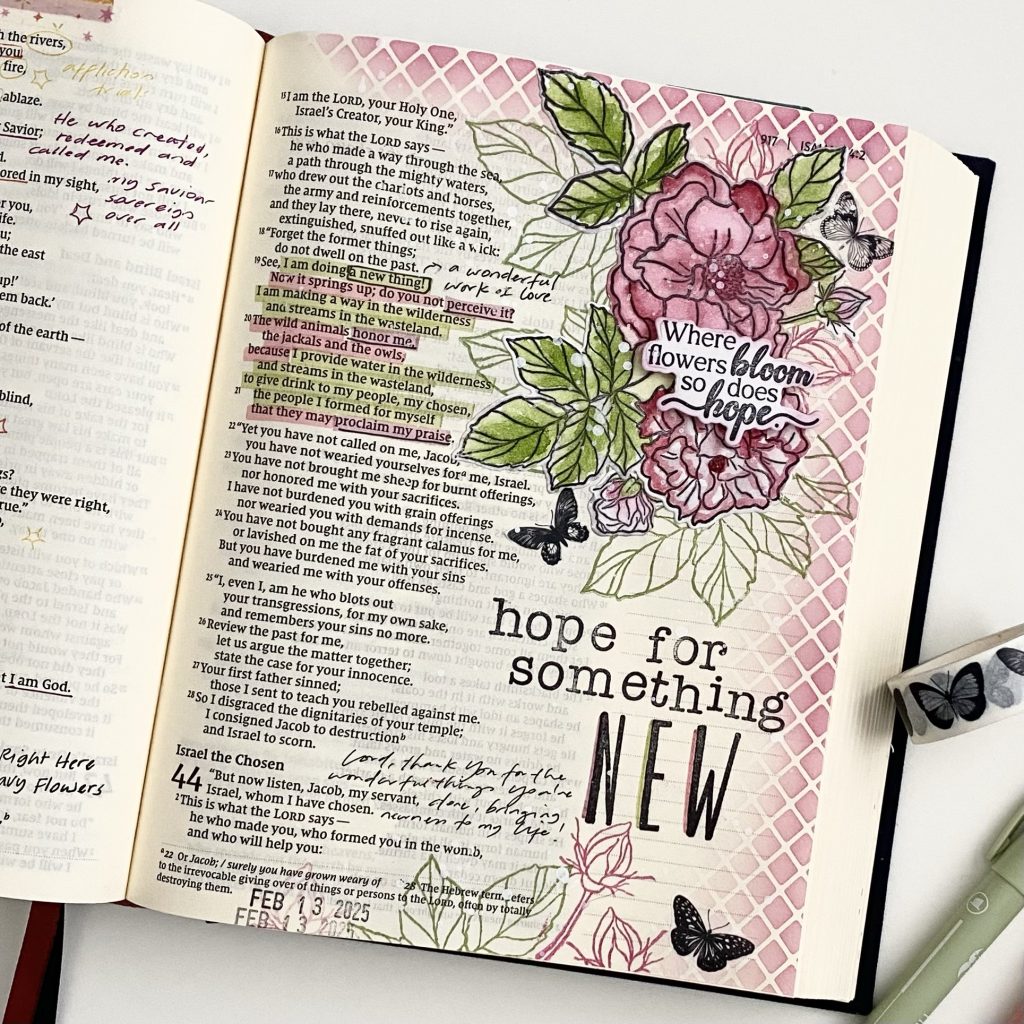 h the rivers,
you,
fire,
affliction
trials
ablaze.
He who created,
redeemed and
called me.
Savior;
ored in my sight,
my Savior
sovereign
over all
or you,
ife.
u;
the east
up!'
em back.'
of the earth —
blind,
gs?
e they were right,
rue."
t I am God.
Right Here
avy Flowers
b
15 I am the LORD, your Holy One,
Israel's Creator, your King."
16 This is what the LORD says —
he who made a way through the sea,
a path through the mighty waters,
17 who drew out the chariots and horses,
the army and reinforcements together,
and they lay there, never to rise again,
extinguished, snuffed out like a wick:
18 "Forget the former things;
do not dwell on the past.
19 See, I am doing a new thing!
a wonderful
work of love
Now it springs up; do you not perceive it?
I am making a way in the wilderness
and streams in the wasteland.
20 The wild animals honor me,
the jackals and the owls,
because I provide water in the wilderness
and streams in the wasteland,
to give drink to my people, my chosen,
21 the people I formed for myself
that they may proclaim my praise.
22 "Yet you have not called on me, Jacob,
you have not wearied yourselves for a me, Israel.
23 You have not brought me sheep for burnt offerings,
nor honored me with your sacrifices.
I have not burdened you with grain offerings
nor wearied you with demands for incense.
24 You have not bought any fragrant calamus for me,
or lavished on me the fat of your sacrifices.
But you have burdened me with your sins
and wearied me with your offenses.
25 "I, even I, am he who blots out
your transgressions, for my own sake,
and remembers your sins no more.
26 Review the past for me,
let us argue the matter together;
state the case for your innocence.
27 Your first father sinned;
those I sent to teach you rebelled against me.
28 So I disgraced the dignitaries of your temple;
I consigned Jacob to destruction b
and Israel to scorn.
Israel the Chosen
44 "But now listen, Jacob, my servant,
Israel, whom I have chosen.
2 This is what the LORD says —
he who made you, who formed you in the womb,
and who will help you:
Lord, thank You for the
wonderful things You've
done, bringing
newness to my life!
a 22 Or Jacob; / surely you have grown weary of
b 28 The Hebrew term refers
to the irrevocable giving over of things or persons to the LORD, often by totally
destroying them.
FEB 13 2025
FEB 13 2025
917 | ISAIAH 44:2
Where
flowers bloom
so does
hope.
hope for
something
NEW